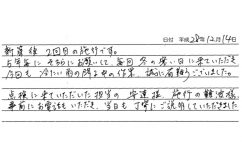 日付 平成28年12月14日
新築後 2回目の施行です。
5年毎に そちらにお願いして、毎回 冬の寒い日に来ていただき
今回も 冷たい雨の降る中の作業、誠に有難うございました。
点検に来ていただいた担当の 安達様、施行の 様
事前にお電話もいただき、当日も 丁寧にご説明していただきました